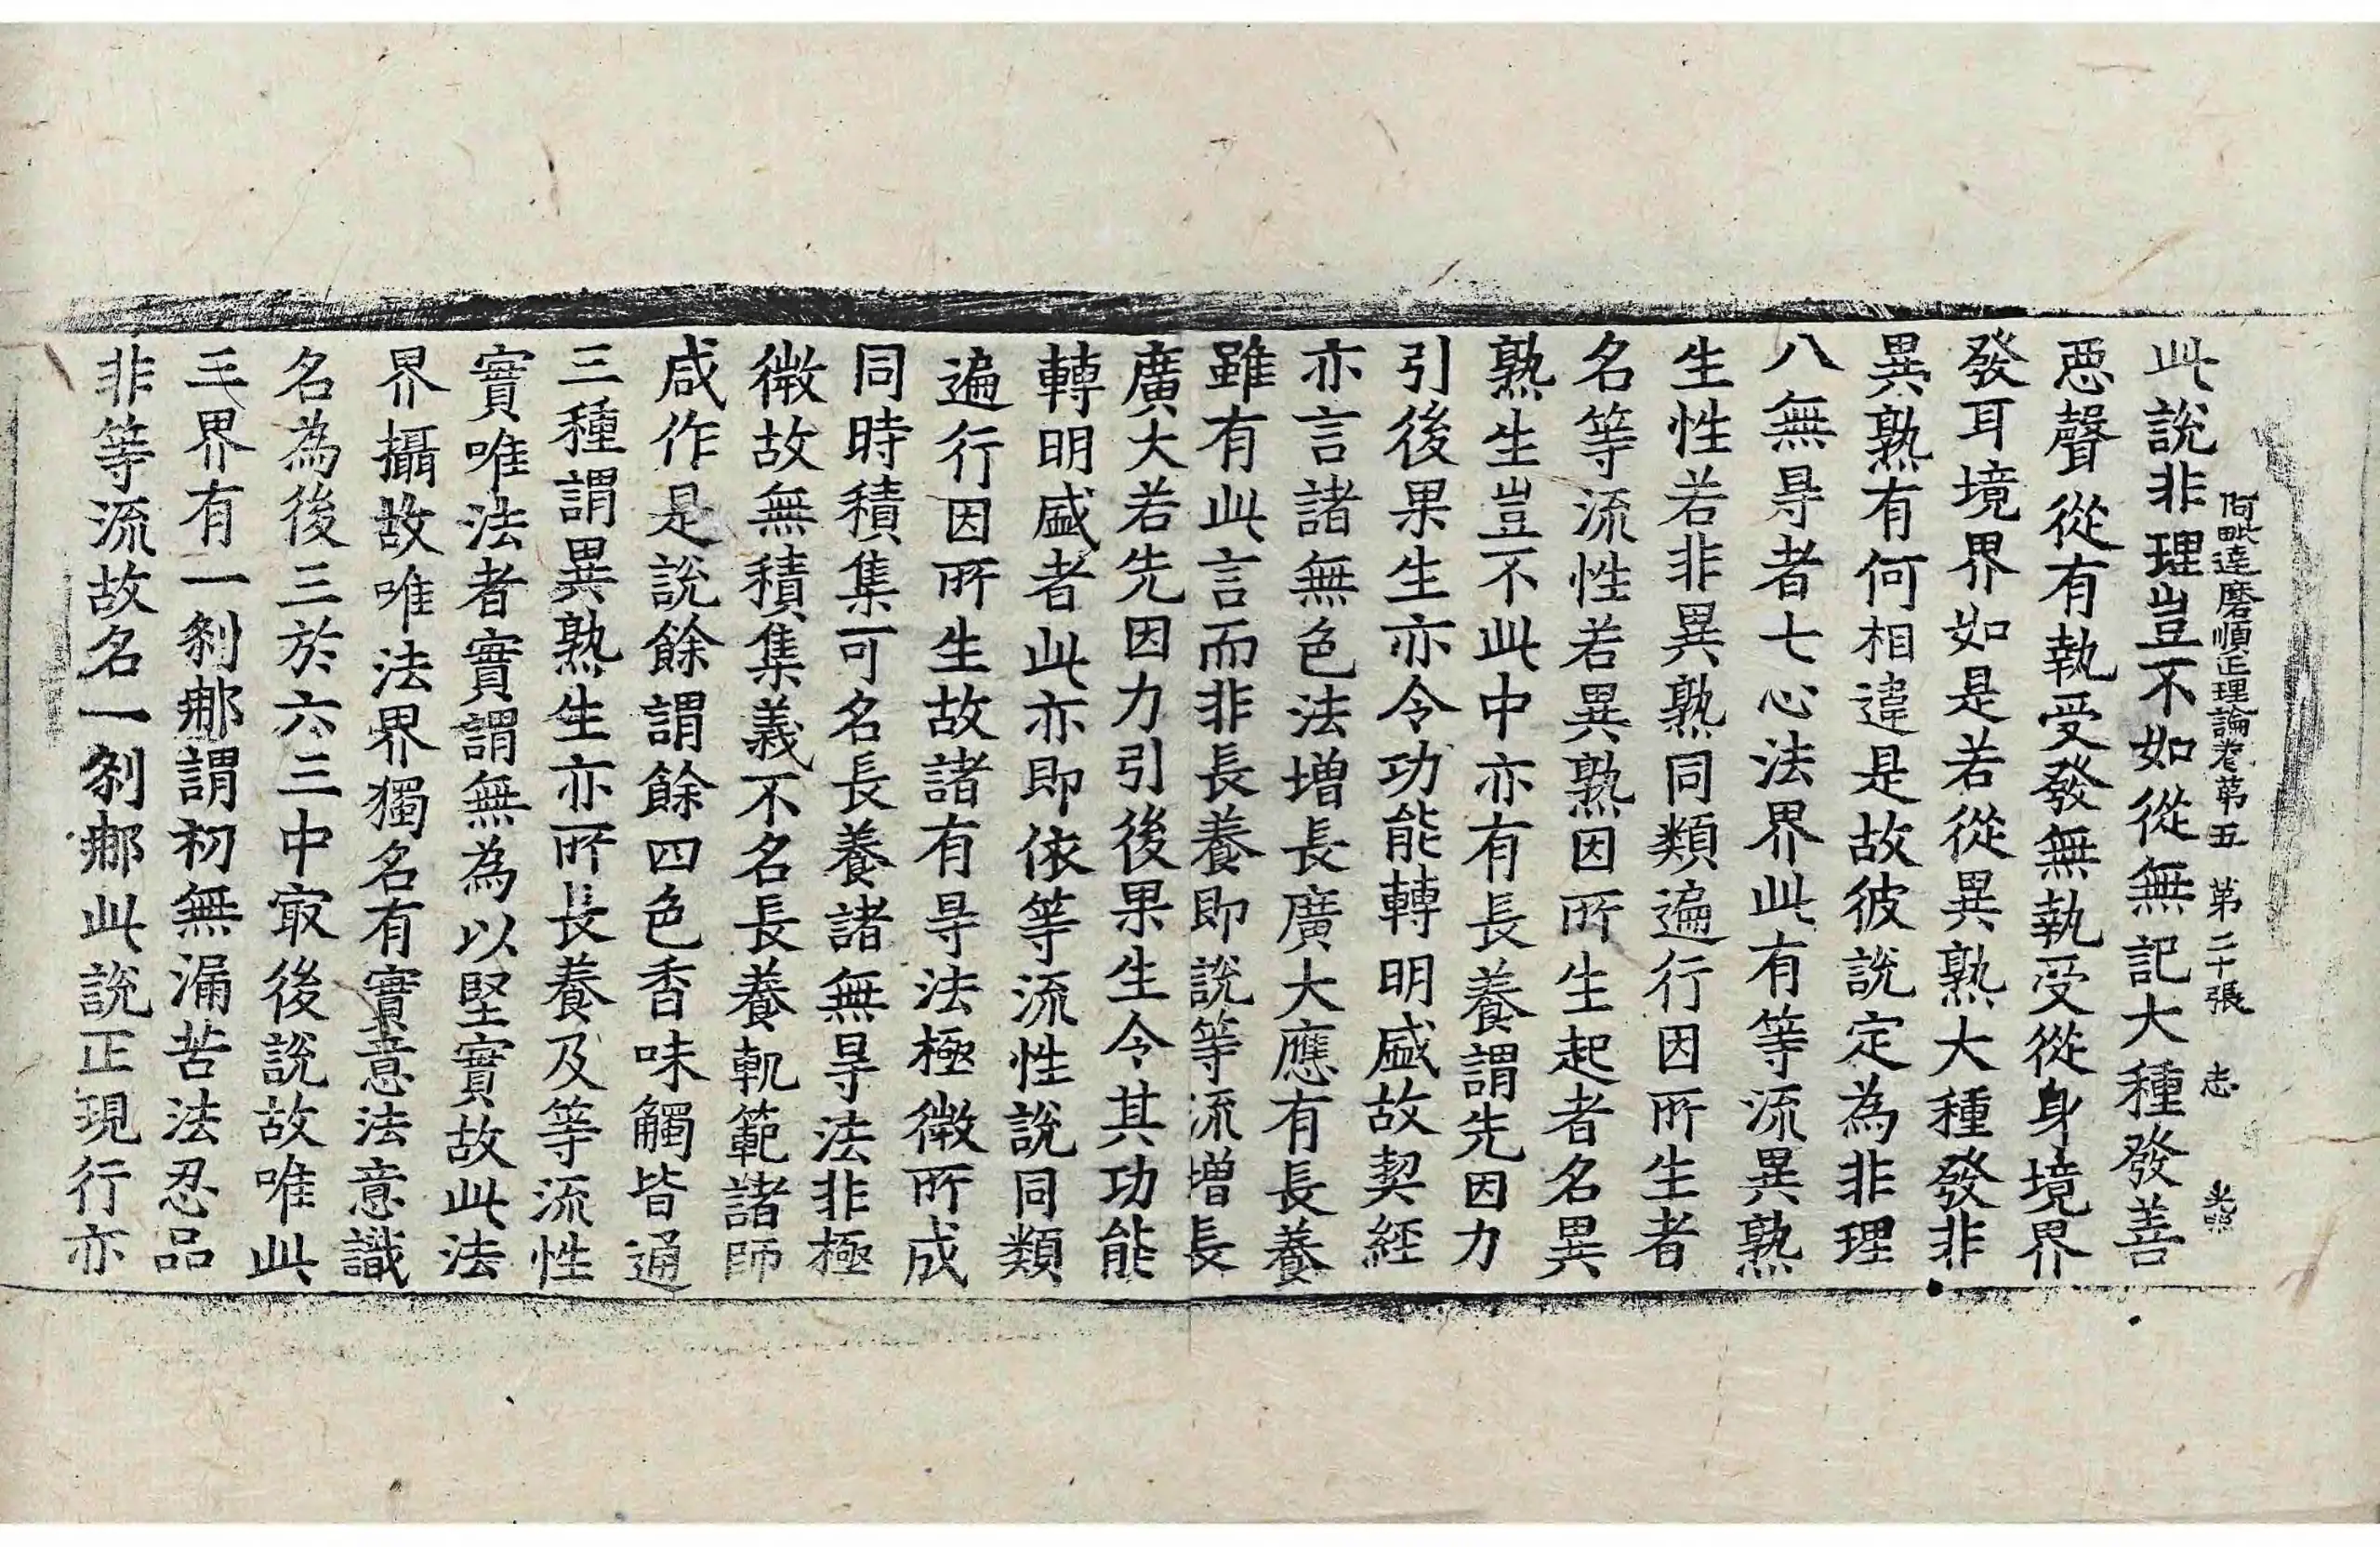 此說非理豈不如從無記大種發善
阿毗達磨順正理論卷第五 第二十張 志
惡聲從有執受發無執受從身境界
發耳境界如是若從異熟大種發非
異熟有何相違是故彼說定為非理
八無㝵者七心法界此有等流異熟
生性若非異熟同類遍行因所生者
名等流性若異熟因所生起者名異
熟生豈不此中亦有長養謂先因力
引後果生亦令功能轉明盛故契經
亦言諸無色法增長廣大應有長養
雖有此言而非長養即說等流增長
廣大若先因力引後果生令其功能
轉明盛者此亦即依等流性說同類
遍行因所生故諸有㝵法極微所成
同時積集可名長養諸無㝵法非極
微故無積集義不名長養軌範諸師
咸作是說餘謂餘四色香味觸皆通
三種謂異熟生亦所長養及等流性
實唯法者實謂無為以堅實故此法
界攝故唯法界獨名有實意法意識
名為後三於六三中㝡後說故唯此
三界有一剎那謂初無漏苦法忍品
非等流故名一剎那此說正現行亦